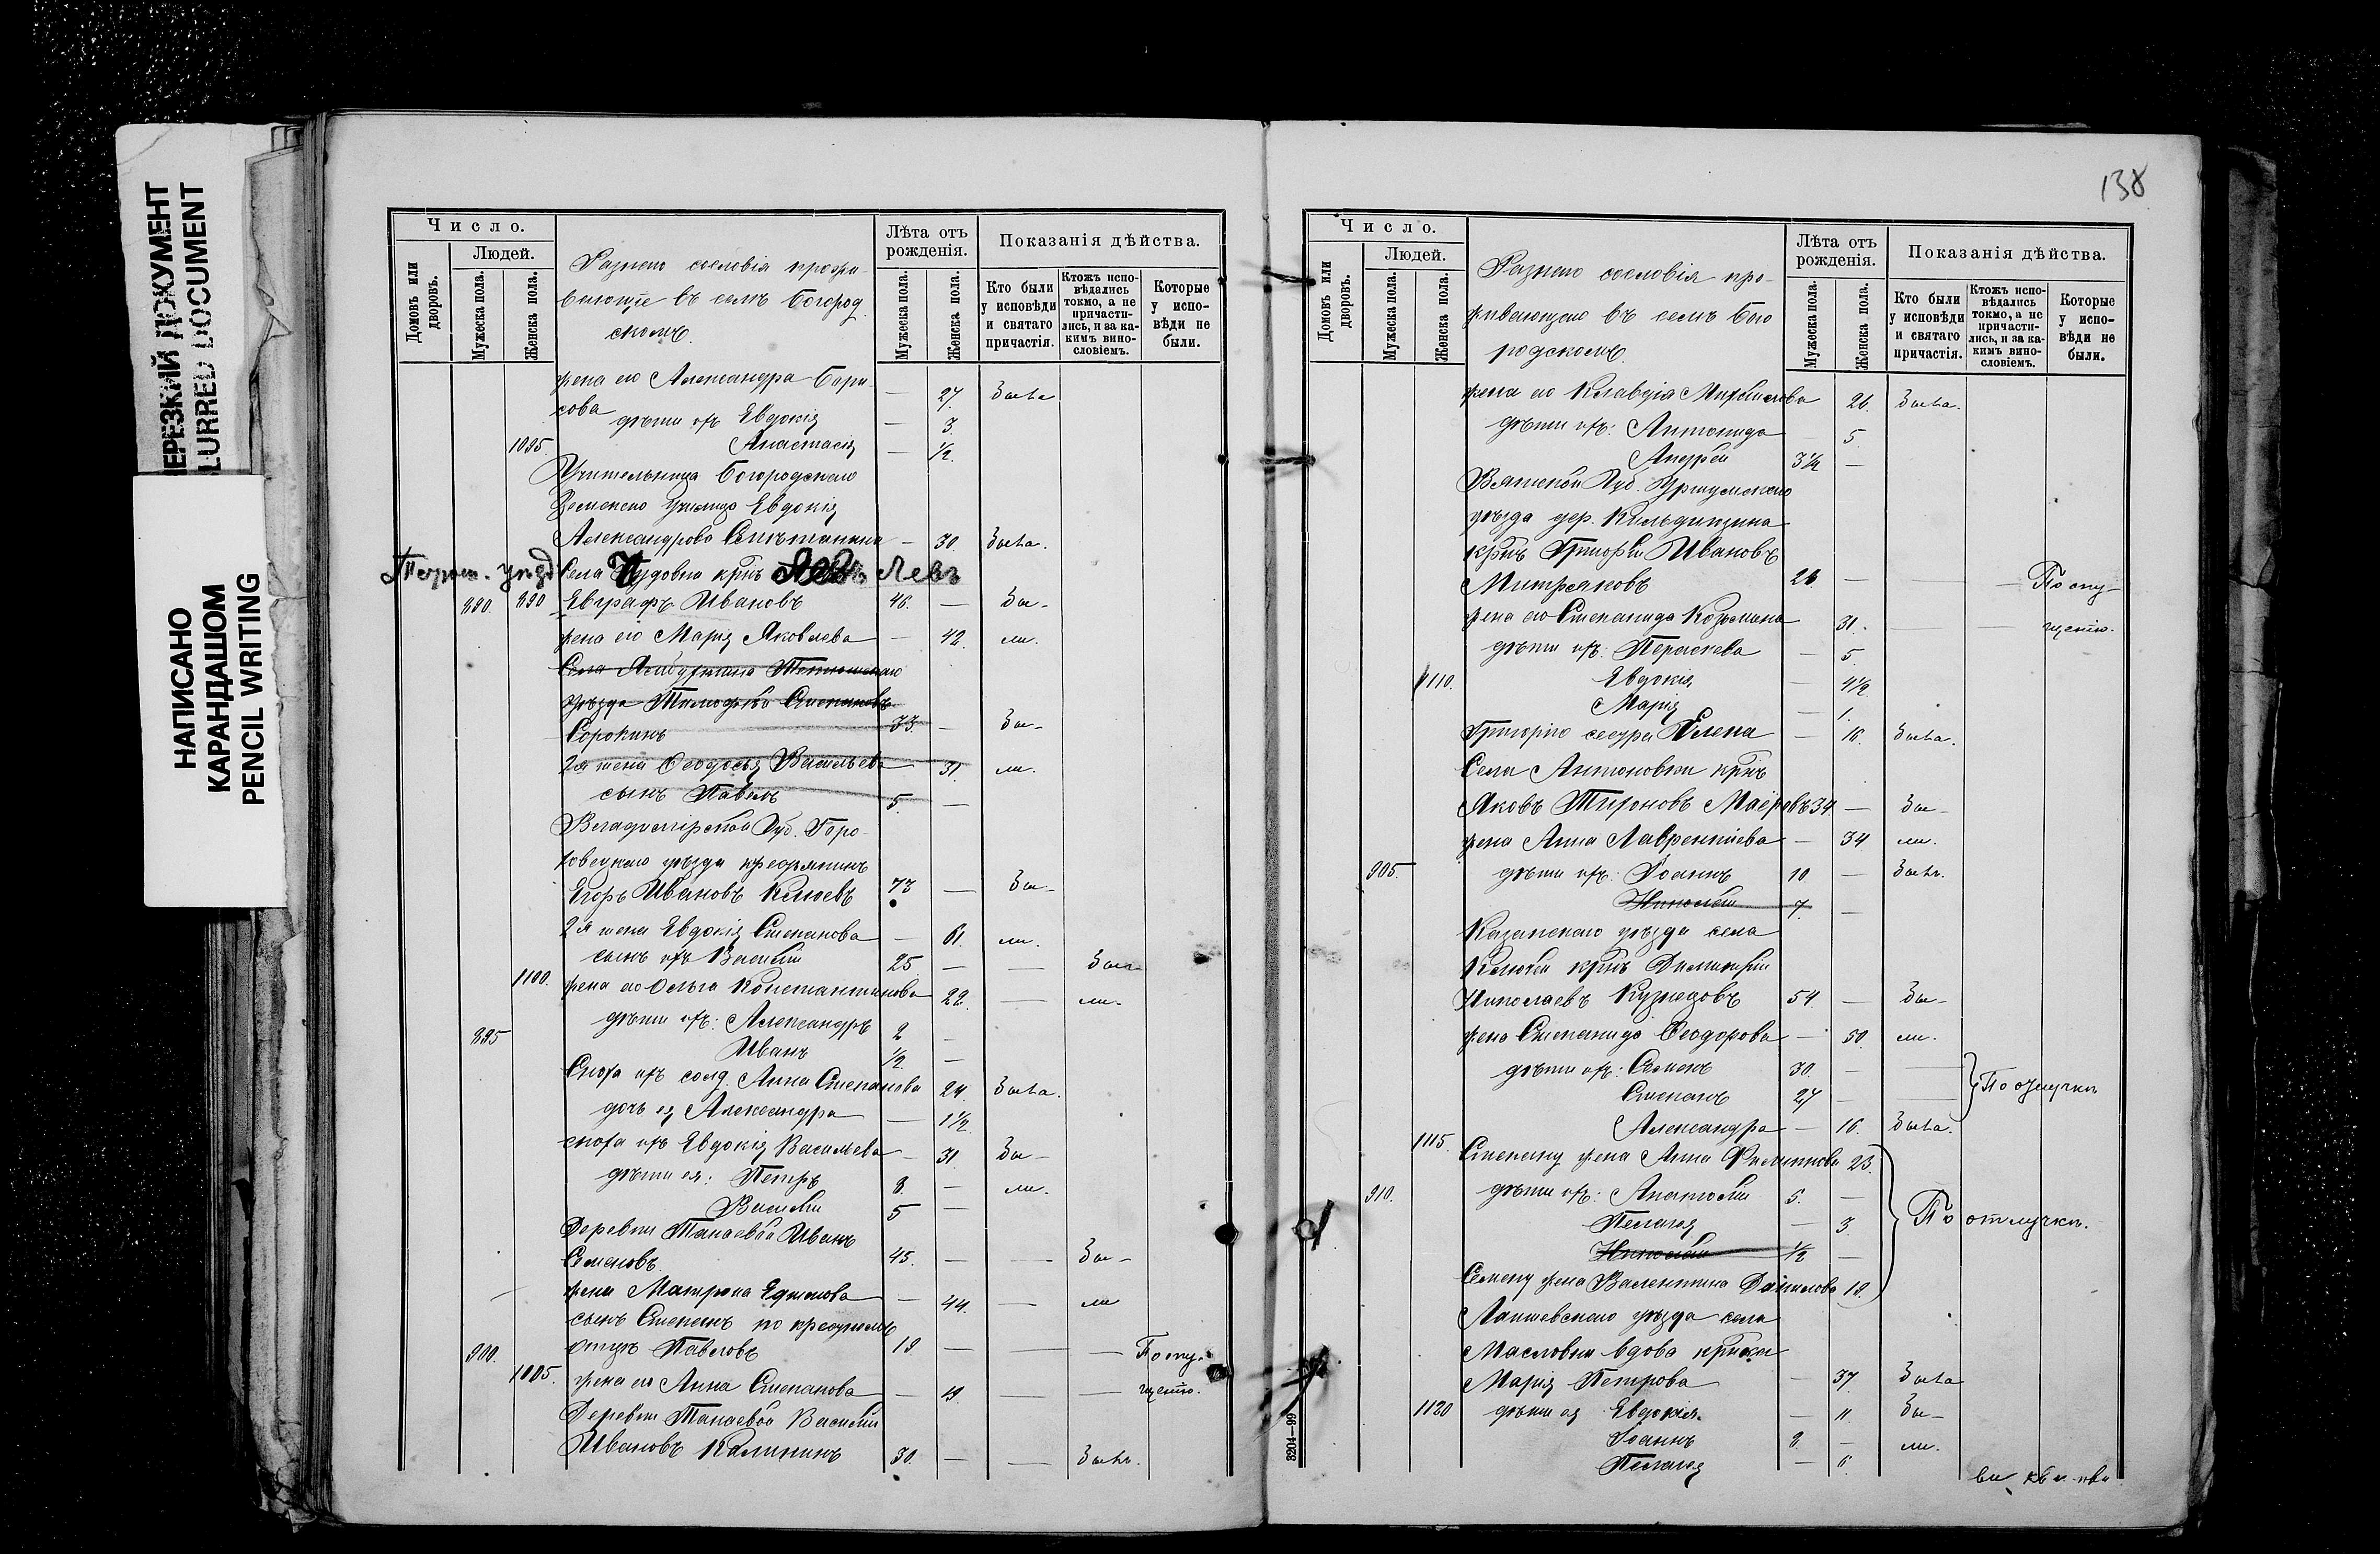 НЕРЕЗКИЙ ДОКУМЕНТ
BLURRED DOCUMENT
НАПИСАНО
КАРАНДАШОМ
PENCIL WRITING
Число.
Людей.
Домовъ или дворовъ.
Мужеска пола.
Женска пола.
Разнаго сословія прожи-
вающіе въ селѣ Богород
скомъ.
Лѣта отъ рожденія.
Мужеска пола.
Женска пола.
Показанія дѣйства.
Кто были у исповѣди и святаго причастія.
Ктожъ испо-вѣдались токмо, а не причасти-лись, и за ка-кимъ вино-словіемъ.
Которые у испо-вѣди не были.
жена его Александра Бори- — 27. Была
сова
дѣти ихъ Евдокія — 3.
1095. Анастасія — 1/2.
Учительница Богородскаго
Земскаго училища Евдокія
Александрова — 30. Была.
Села крнъ Левъ
890. 890 Евграфъ Ивановъ 46. — Бы-
жена его Марія Яковлева — 42. ли.
Села Тетюшскаго
уѣзда Тимофей Степановъ
Сорокинъ 33. — Бы-
2я жена Ѳеодосья Васильева 31. ли.
сынъ Павелъ 5. —
Владимірской Губ. Горо-
ховецкаго уѣзда крестьянинъ
Егоръ Ивановъ 73 — Бы-
2я жена Евдокія Степанова — 61. ли.
сынъ ихъ Василій 25 — — Бы-
1100. жена его Ольга Константинова 22. — ли.
дѣти ихъ: Александръ 2 —
895 Иванъ 1/2. —
Сноха ихъ солд. Анна Степанова 24. Была.
дочь ея Александра — 1 1/2
сноха ихъ Евдокія Васильева — 31. Бы-
дѣти ея: Петръ 8. — ли.
Василій 5 —
Деревни Танаевой Иванъ
Семеновъ. 45. — — Бы-
жена Матрона Ефимова — 44. — ли
сынъ Степанъ по крестному
900. отцу Павловъ 19 — — — По опу-
1105. жена его Анна Степанова — 19. — — щенію.
Деревни Танаевой Василій
Ивановъ Калининъ 30. — — Былъ.
138
Число.
Людей.
Домовъ или дворовъ.
Мужеска пола.
Женска пола.
Разнаго сословія про-
живающаго въ селѣ Бого
родскомъ.
Лѣта отъ рожденія.
Мужеска пола.
Женска пола.
Показанія дѣйства.
Кто были у исповѣди и святаго причастія.
Ктожъ испо-вѣдались токмо, а не причасти-лись, и за ка-кимъ вино-словіемъ.
Которые у испо-вѣди не были.
жена его Клавдія 26. Была.
дѣти ихъ: Антонида 5.
Андрей 3 1/2 —
Вятской Губ. Уржумскаго
уѣзда дер. Кильдинзина
крнъ Григорій Ивановъ
Митряковъ 26 — — По опу-
жена его Степанида Козьмина 31. — — щенію.
дѣти ихъ: Параскева — 5.
1110. Евдокія — 4 1/2
Марія — 1.
Григорію сестра Елена — 16. Была.
Села Антоновки крнъ
Яковъ Маіоровъ 34 — Бы-
жена Анна Лаврентіева — 34 ли.
905. дѣти ихъ: Іоаннъ 10 — Былъ.
Николай 7. —
Казанскаго уѣзда села
крнъ Димитрій
Николаевъ Кузнецовъ 54 — Бы-
жена Степанида Ѳеодорова — 50. ли.
дѣти ихъ: Семенъ 30. — —
Степанъ 27 — — По отлучкѣ
Александра — 16. Была.
1115. Степану жена Анна Филиппова 23.
910. дѣти ихъ: Анатолій 5. —
Пелагія — 3. По отлучкѣ.
Николай 1/2 —
Семену жена Валентина Данилова 19.
Лаишевскаго уѣзда села
Масловки вдова крнка
Марія Петрова — 37 Была
1120 дѣти ея Евдокія — 11. Бы-
Іоаннъ 8. — ли.
Пелагія — 6.
3204—99